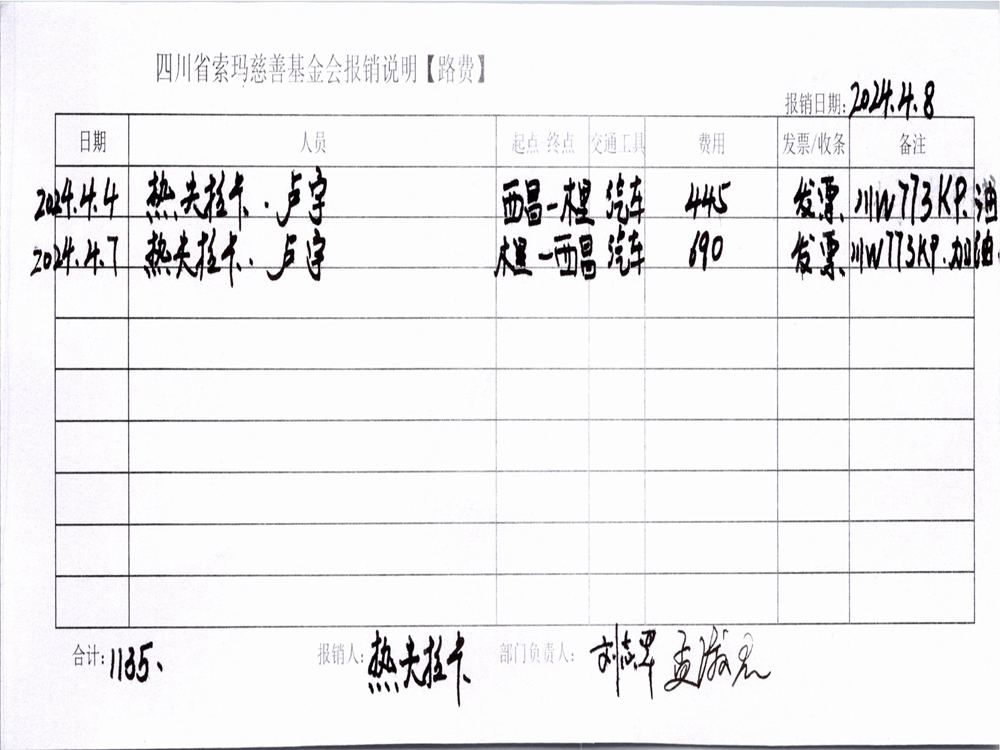 四川省索玛慈善基金会报销说明【路费】
报销日期:2024.4.8
日期 人员 起点-终点 交通工具 费用 发票/收条 备注
2024.4.4 热夫拉卡.卢宇 西昌-木里 汽车 445 发票 川W773KP.油
2024.4.7 热夫拉卡.卢宇 木里-西昌 汽车 690 发票 川W773KP.加油.
合计:1135. 报销人:热夫拉卡 部门负责人: 刘志军